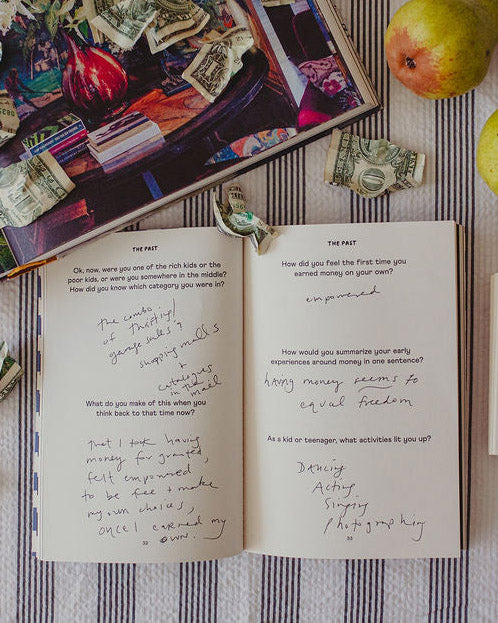 THE PAST
Ok, now, were you one of the rich kids or the
poor kids, or were you somewhere in the middle?
How did you know which category you were in?
the combo
of thrifting/
garage sales &
shopping malls
+
catalogues
in the
mail
What do you make of this when you
think back to that time now?
that I took having
money for granted,
felt empowered
to be free + make
my own choices,
once I earned my
own.
32
THE PAST
How did you feel the first time you
earned money on your own?
empowered
How would you summarize your early
experiences around money in one sentence?
having money seems to
equal freedom
As a kid or teenager, what activities lit you up?
Dancing
Acting
Singing
Photographing
33